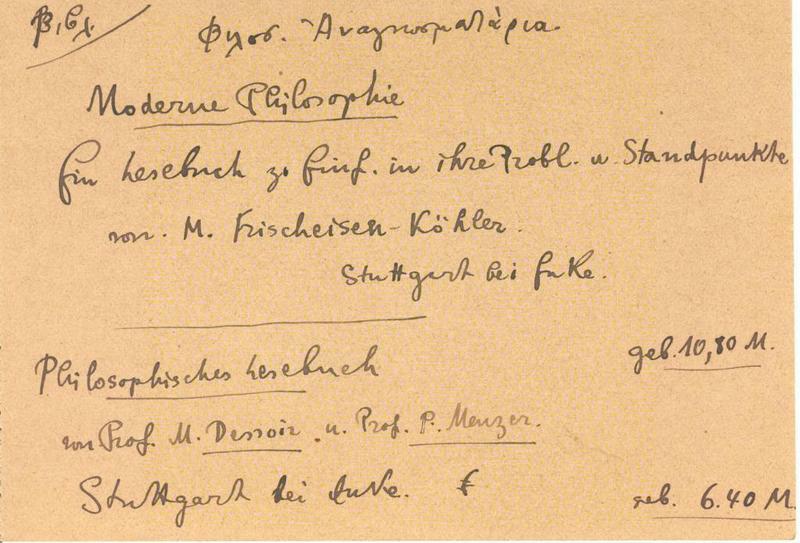 Βιβλ.
Φιλοσ. Ἀναγνωσματάρια.
Moderne Philosophie
Ein Lesebuch z. Einf. in ihre Probl. u. Standpunkte
von. M. Frischeisen-Köhler.
Stuttgart bei Enke.
geb. 10,80 M.
Philosophisches Lesebuch
von Prof. M. Dessoir u. Prof. P. Menzer.
Stuttgart bei Enke.
geb. 6.40 M.